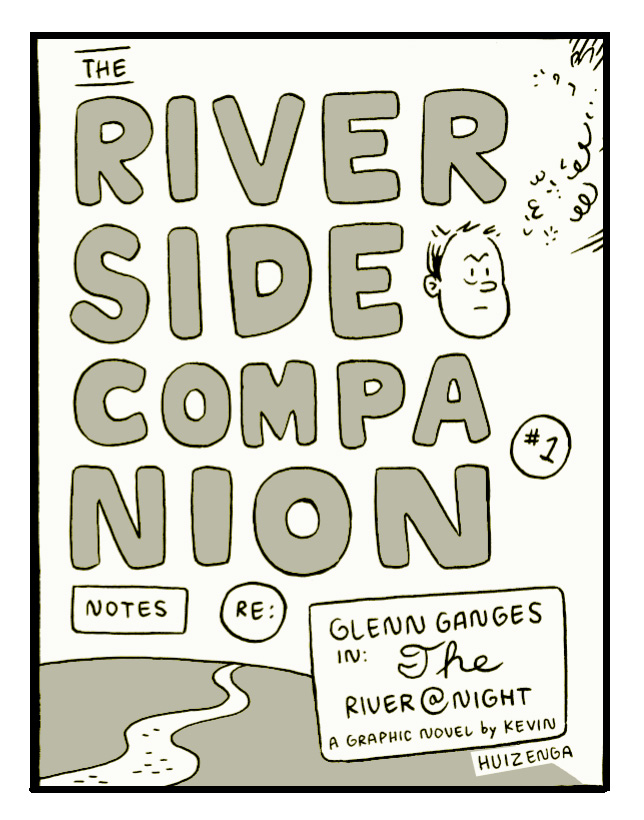 THE
RIVER
SIDE
COMPA
NION
#1
NOTES RE:
GLENN GANGES
IN: The
RIVER@NIGHT
A GRAPHIC NOVEL by KEVIN
HUIZENGA